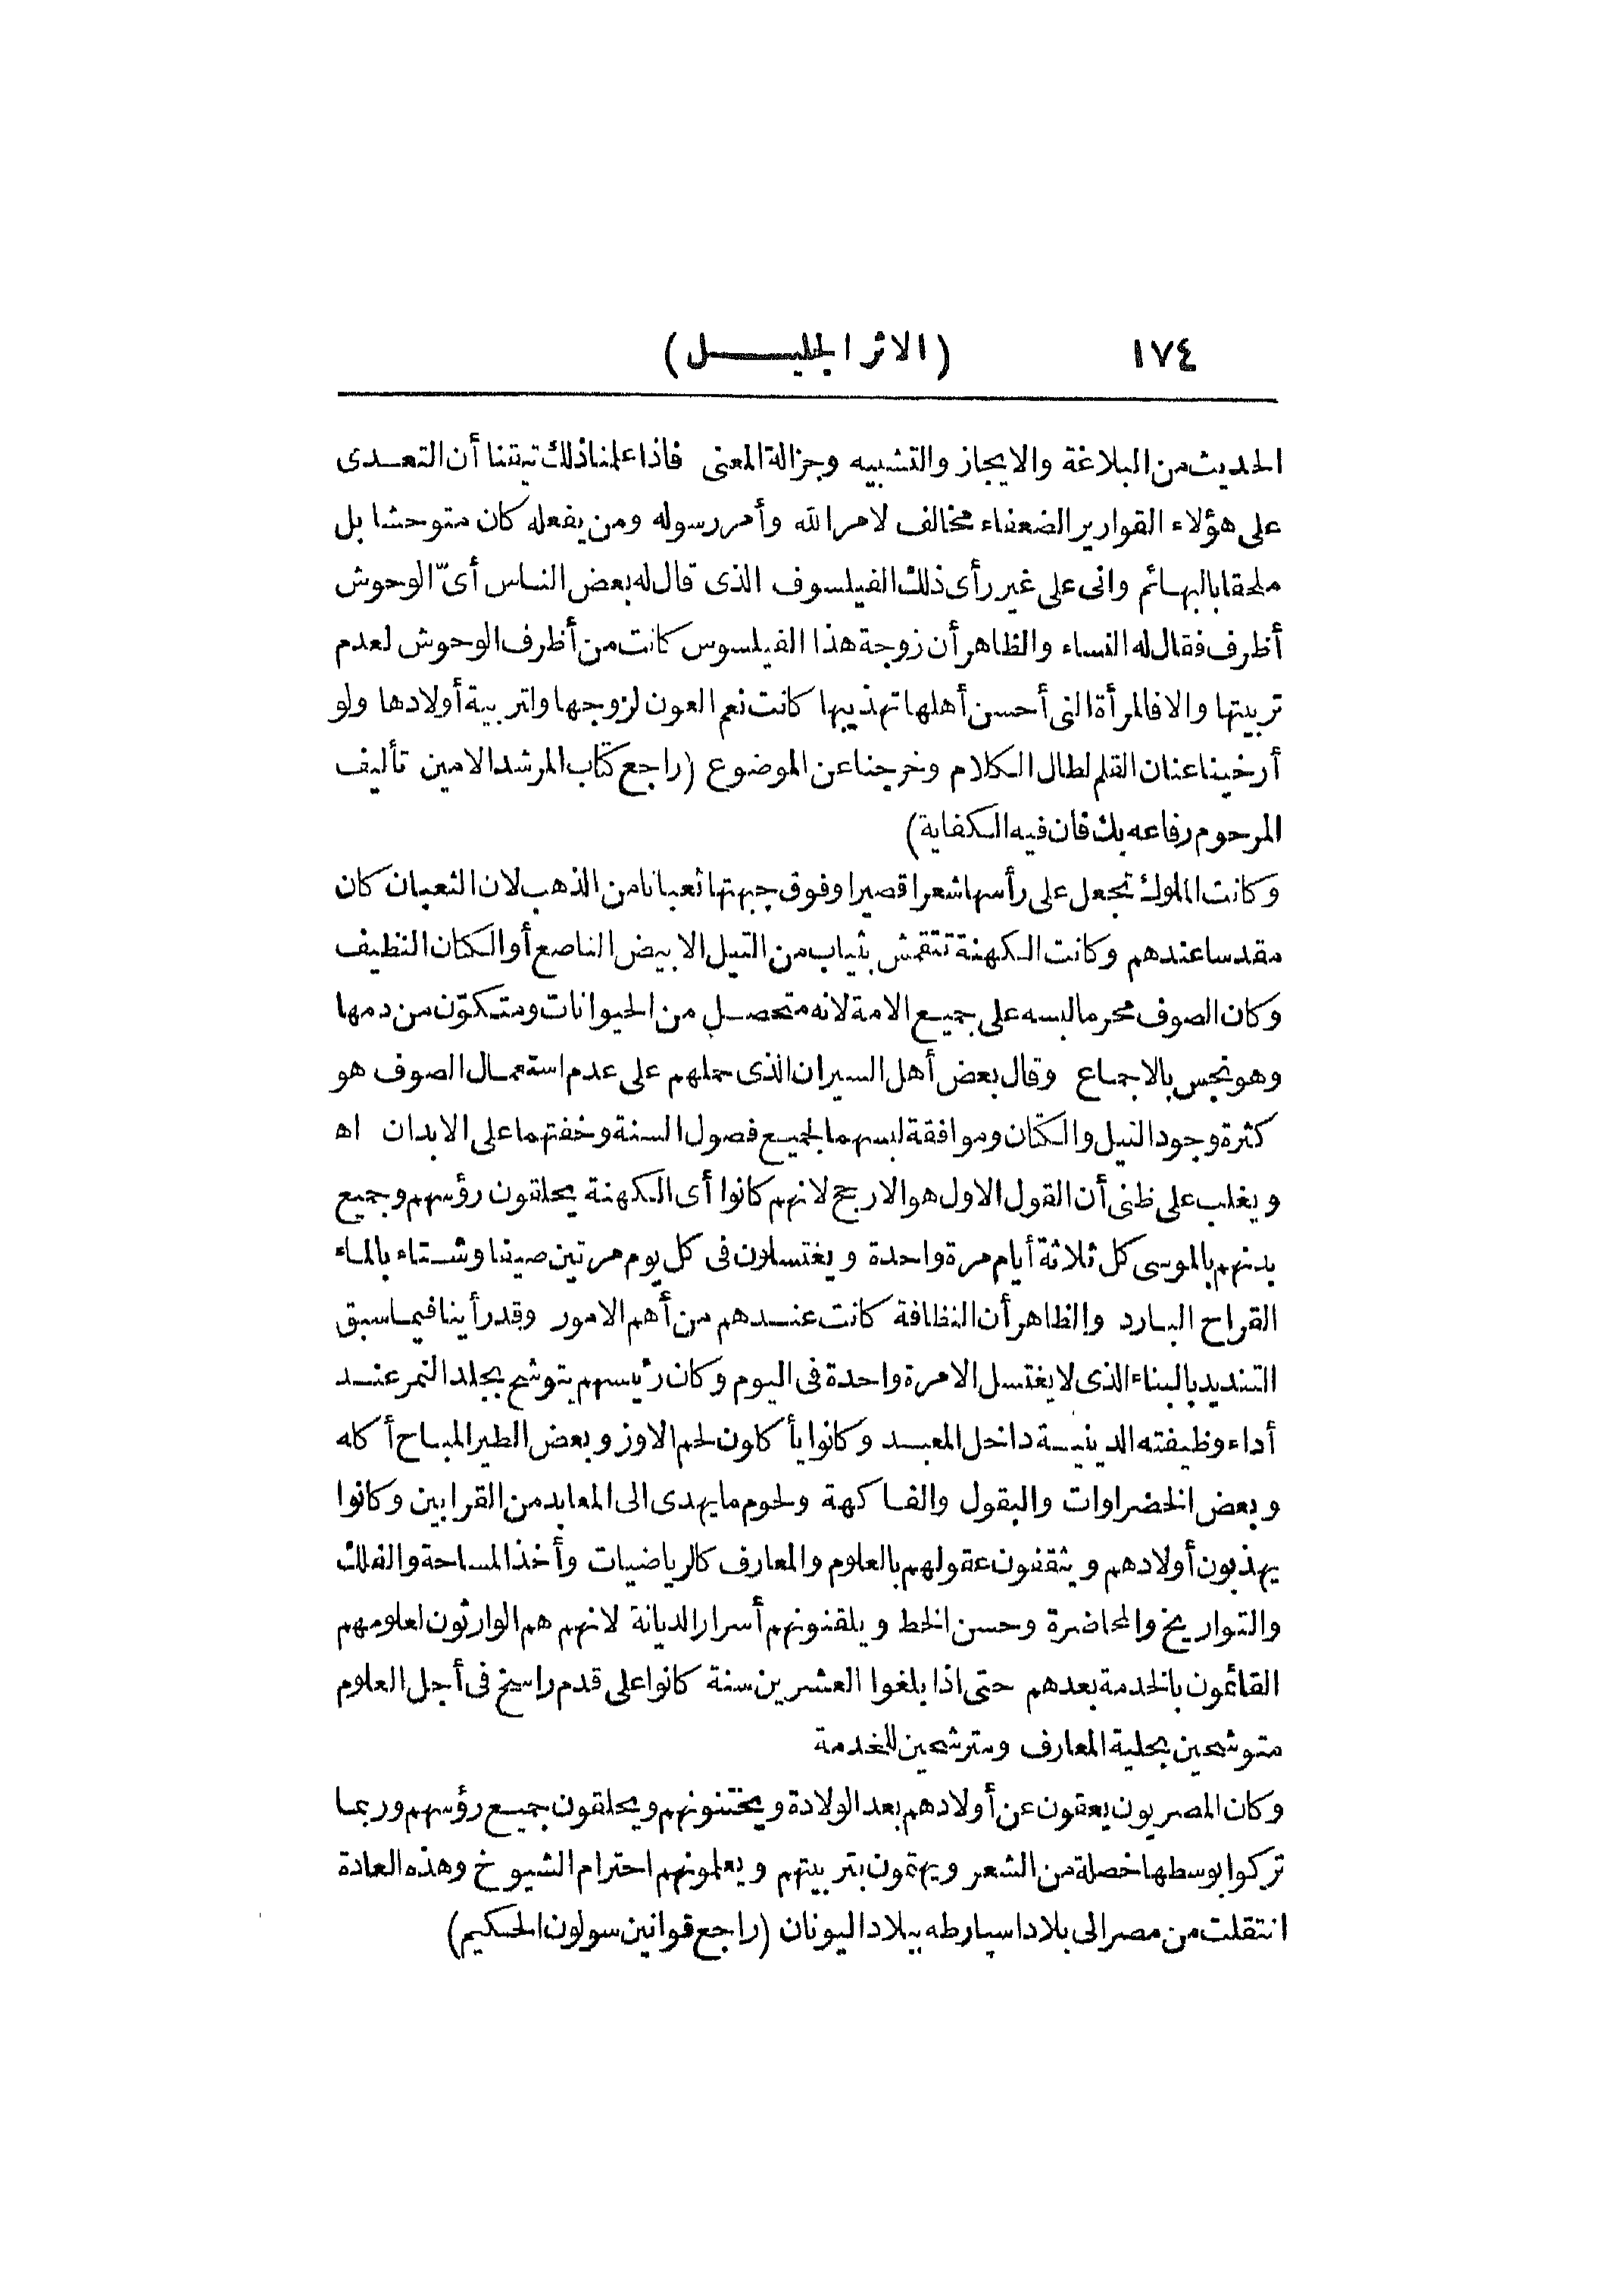 ١٧٤ (الاثر الجليل)
الحديث من البلاغة والايجاز والتشبيه وجزالة المعنى فاذا علمنا ذلك تيقنا أن التعدى
على هؤلاء القوارير الضعفاء مخالف لامر الله وأمر رسوله ومن يفعله كان متوحشا بل
ملحقا بالبهائم وانى على غير رأى ذلك الفيلسوف الذى قال له بعض الناس أىّ الوحوش
أظرف فقال له النساء والظاهر أن زوجة هذا الفيلسوس كانت من أظرف الوحوش لعدم
تربيتها والا فالمرأة التى أحسن أهلها تهذيبها كانت نعم العون لزوجها ولتربية أولادها ولو
أرخينا عنان القلم لطال الكلام وخرجنا عن الموضوع (راجع كتاب المرشد الامين تأليف
المرحوم رفاعه بك فان فيه الكفاية)
وكانت الملوك تجعل على رأسها شعرا قصيرا وفوق جبهتها ثعبانا من الذهب لان الثعبان كان
مقدسا عندهم وكانت الكهنة تتقمش بثياب من التيل الابيض الناصع أو الكتان النظيف
وكان الصوف محرما لبسه على جميع الامة لانه متحصل من الحيوانات ومتكوّن من دمها
وهو نجس بالاجماع وقال بعض أهل السير ان الذى حملهم على عدم استعمال الصوف هو
كثرة وجود التيل والكتان وموافقة لبسهما لجميع فصول السنة وخفتهما على الابدان اه
ويغلب على ظنى أن القول الاول هو الارجح لانهم كانوا أى الكهنة يحلقون رؤسهم وجميع
بدنهم بالموسى كل ثلاثة أيام مرة واحدة ويغتسلون فى كل يوم مرتين صيفا وشتاء بالماء
القراح البارد والظاهر أن النظافة كانت عندهم من أهم الامور وقد رأينا فيما سبق
التنديد بالبناء الذى لا يغتسل الا مرة واحدة فى اليوم وكان رئيسهم يتوشح بجلد النمر عند
أداء وظيفته الدينية داخل المعبد وكانوا يأكلون لحم الاوز وبعض الطير المباح أكله
وبعض الخضراوات والبقول والفاكهة ولحوم ما يهدى الى المعابد من القرابين وكانوا
يهذبون أولادهم ويثقفون عقولهم بالعلوم والمعارف كالرياضيات وأخذ المساحة والفلك
والتواريخ والمحاضرة وحسن الخط ويلقنونهم أسرار الديانة لانهم هم الوارثون لعلومهم
القائمون بالخدمة بعدهم حتى اذا بلغوا العشرين سنة كانوا على قدم راسخ فى أجل العلوم
متوشحين بحلية المعارف ومترشحين للخدمة
وكان المصريون يعقون عن أولادهم بعد الولادة ويختنونهم ويحلقون جميع رؤسهم وربما
تركوا بوسطها خصلة من الشعر ويهتمون بتربيتهم ويعلمونهم احترام الشيوخ وهذه العادة
انتقلت من مصر الى بلاد اسپارطه ببلاد اليونان (راجع قوانين سولون الحكيم)